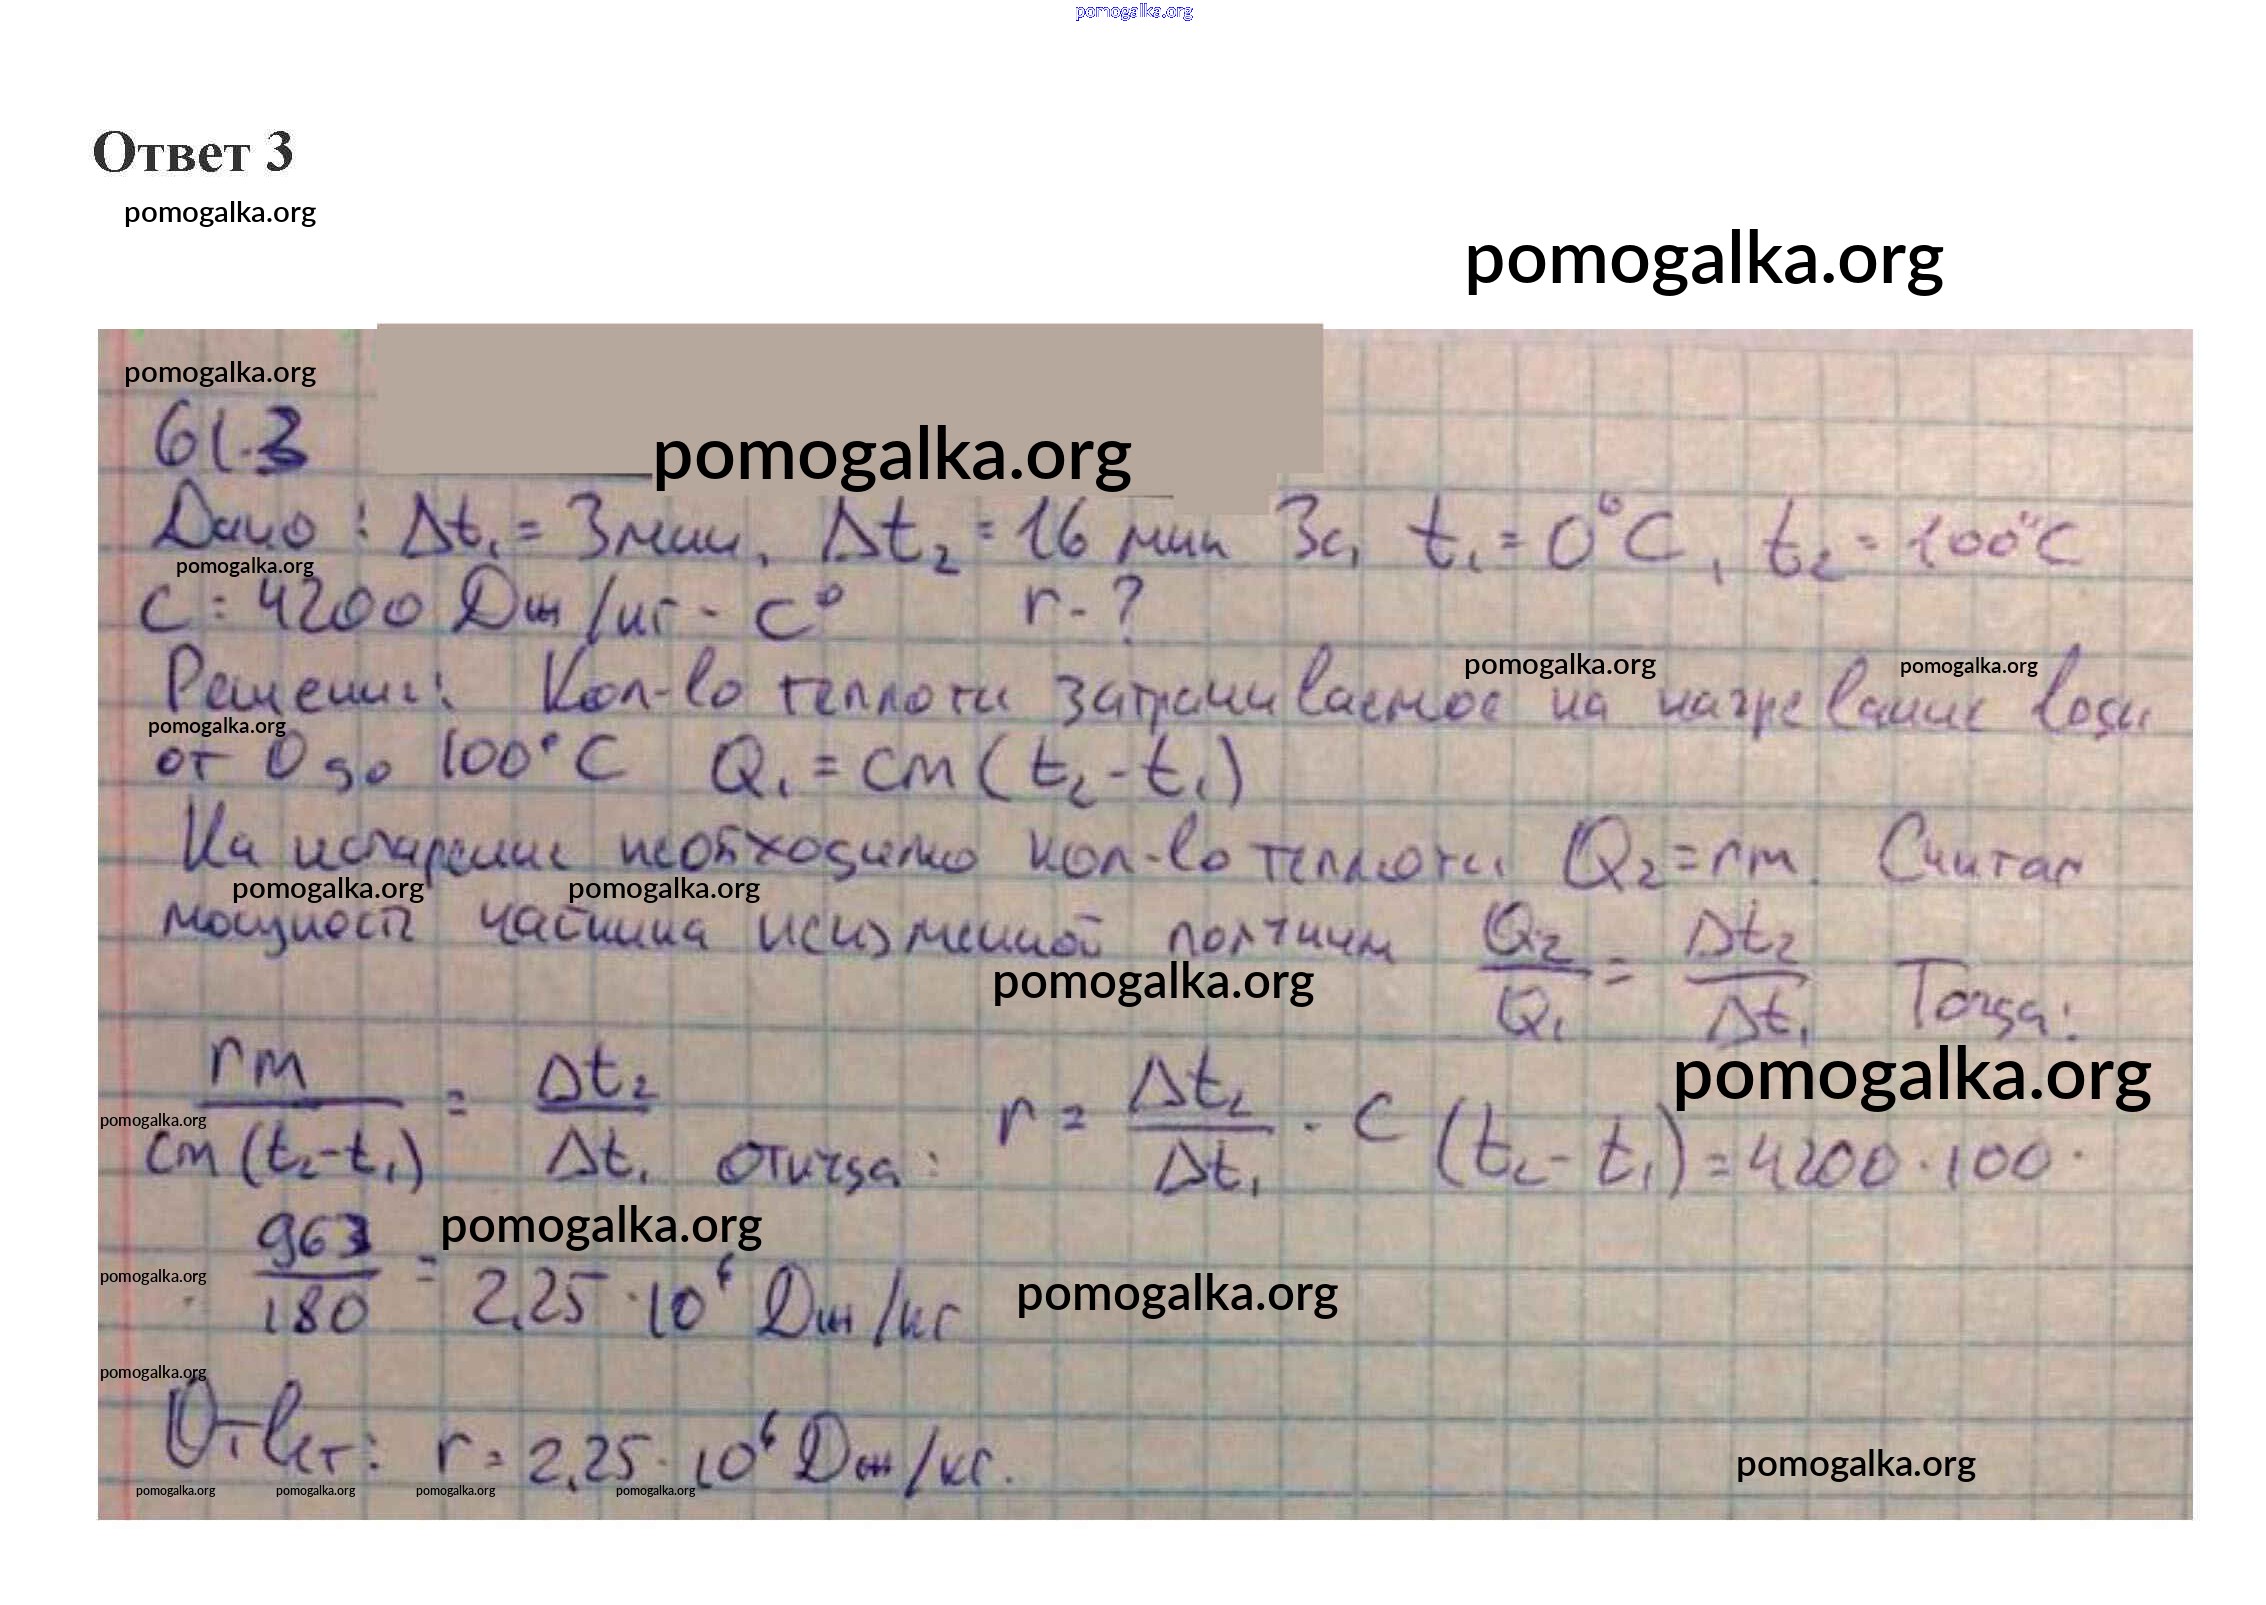 pomogalka.org
Ответ 3
pomogalka.org
pomogalka.org
pomogalka.org
61.3
pomogalka.org
Дано: Δt₁ = 3 мин, Δt₂ = 16 мин 3с, t₁ = 0°C, t₂ = 100°C
pomogalka.org
c = 4200 Дж/кг · C° r - ?
pomogalka.org pomogalka.org
Решение: Кол-во теплоты затрачиваемое на нагревание воды
pomogalka.org
от 0 до 100°C Q₁ = cm(t₂ - t₁)
На испарение необходимо кол-во теплоты Q₂ = rm. Считая
pomogalka.org pomogalka.org
мощность чайника неизменной получим Q₂/Q₁ = Δt₂/Δt₁ Тогда:
pomogalka.org
pomogalka.org
pomogalka.org
rm/cm(t₂-t₁) = Δt₂/Δt₁ откуда: r = Δt₂/Δt₁ · c (t₂ - t₁) = 4200 · 100 ·
pomogalka.org
pomogalka.org
· 963/180 = 2,25 · 10⁶ Дж/кг
pomogalka.org
pomogalka.org
Ответ: r = 2,25 · 10⁶ Дж/кг.
pomogalka.org
pomogalka.org pomogalka.org pomogalka.org pomogalka.org